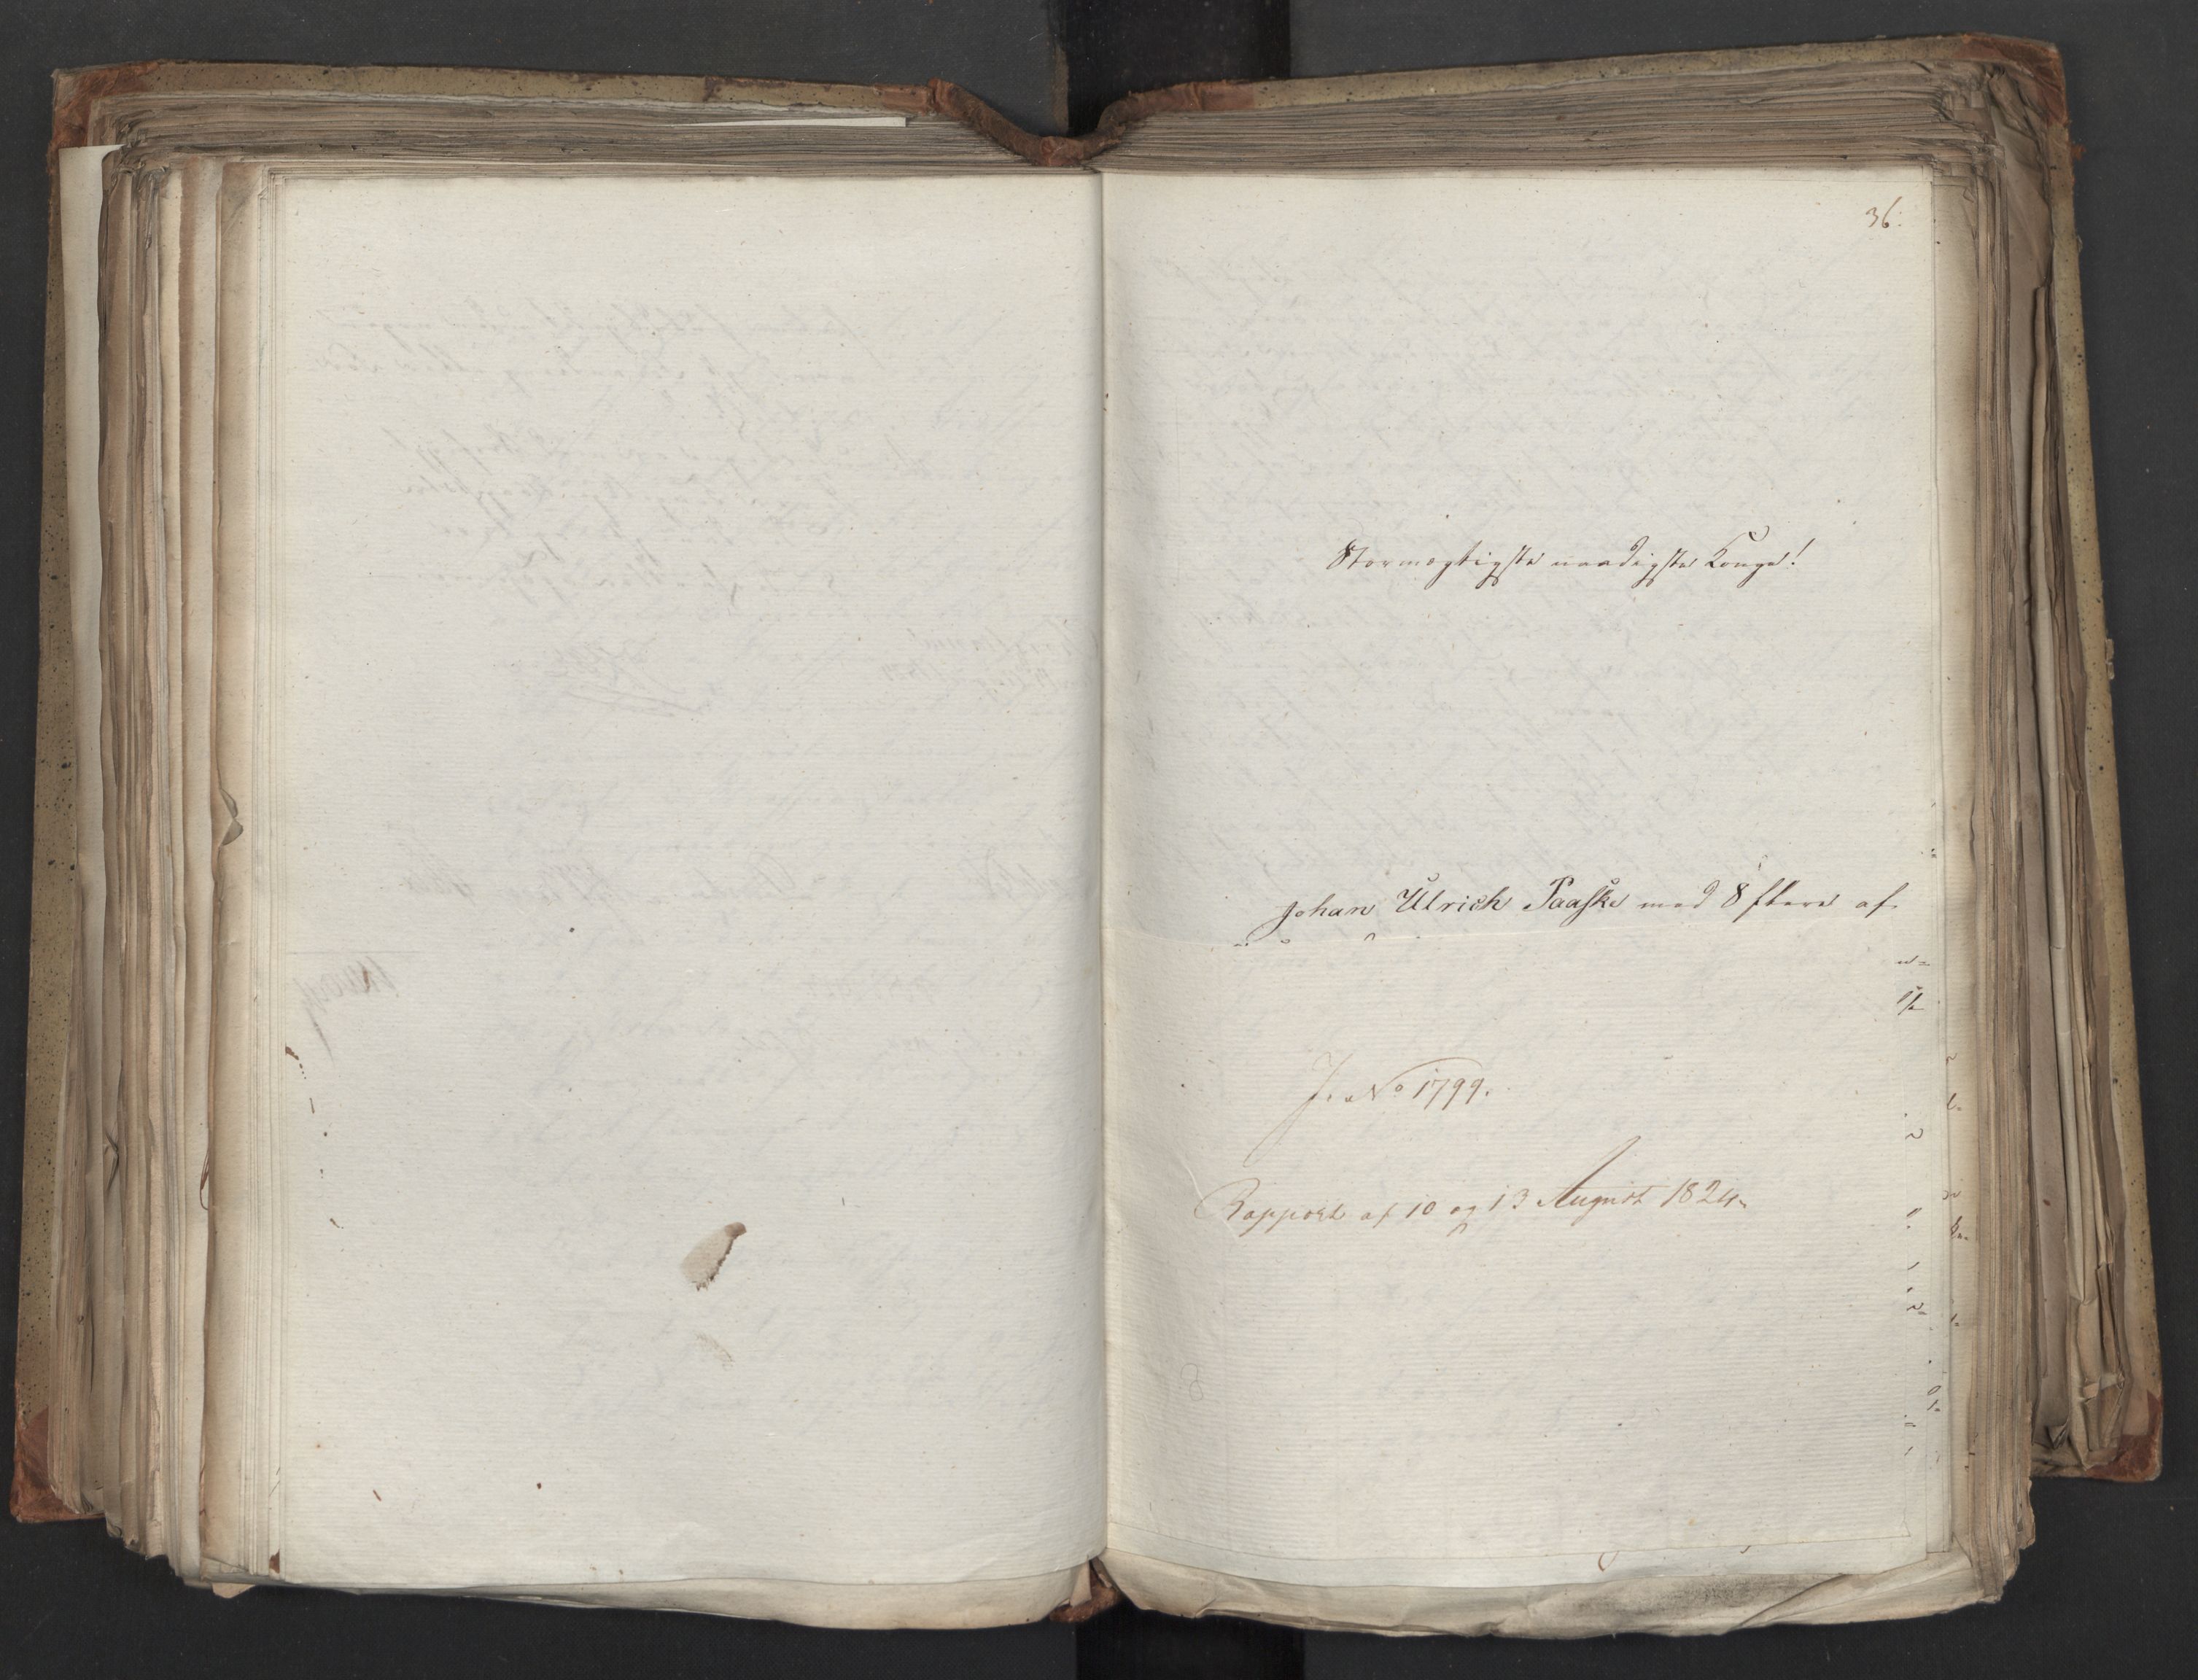 36.
Stormægtigste naadigste Konge!
Johan Ulrich Paaske med 8 flere af
J. No 1799.
Rapport af 10 og 13 August 1824.